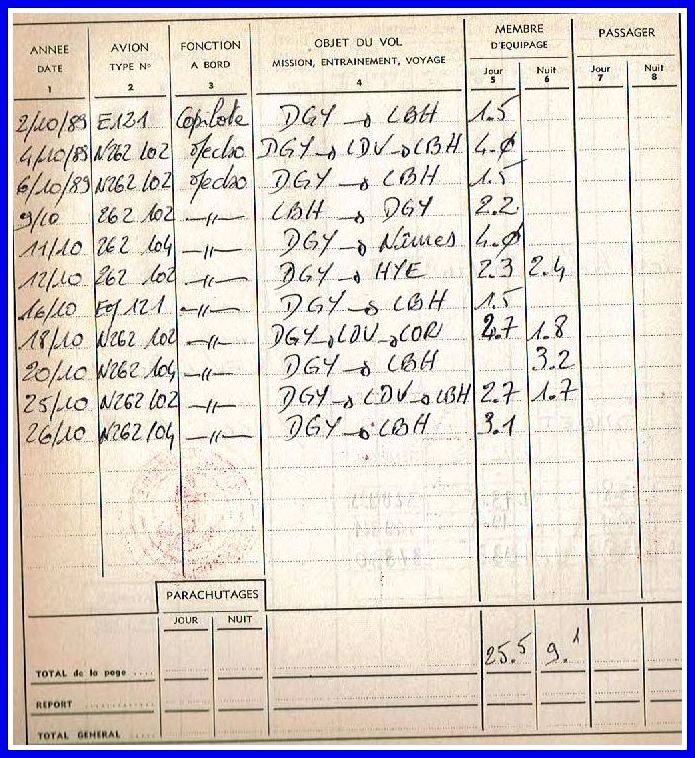 ANNEE AVION FONCTION OBJET DU VOL MEMBRE D'EQUIPAGE PASSAGER
DATE TYPE N° A BORD MISSION, ENTRAINEMENT, VOYAGE Jour Nuit Jour Nuit
1 2 3 4 5 6 7 8
2/10/89 E121 Copilote DGY → LBH 1.5
4/10/89 N262 102 DGY → LDV → LBH 4.0
6/10/89 N262 102 DGY → LBH 1.5
9/10 262 102 —"— LBH → DGY 2.2
11/10 262 104 —"— DGY → Nîmes 4.0
12/10 262 102 —"— DGY → HYE 2.3 2.4
16/10 121 —"— DGY → LBH 1.5
18/10 N262 102 —"— DGY → LDV → LOR 2.7 1.8
20/10 N262 104 —"— DGY → LBH 3.2
25/10 N262 102 —"— DGY → LDV → LBH 2.7 1.7
26/10 N262 104 —"— DGY → LBH 3.1
PARACHUTAGES
JOUR NUIT
TOTAL de la page .... 25.5 9.1
REPORT ............
TOTAL GENERAL .....